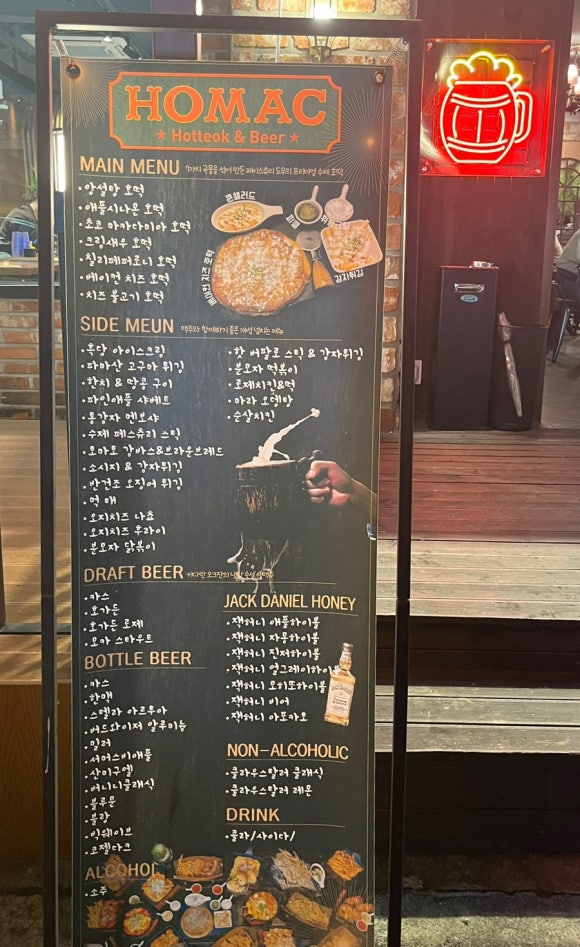 HOMAC
★ Hotteok & Beer ★
MAIN MENU 7가지 곡물을 섞어 만든 페이스츄리 도우의 프리미엄 수제 호떡
•앙설탕 호떡
•애플시나몬 호떡
•초코 마카다미아 호떡
•크림새우 호떡
•칠리페퍼로니 호떡
•베이컨 치즈 호떡
•치즈 불고기 호떡
콘샐러드
피클
감자튀김
베이컨 치즈 호떡
SIDE MEUN 맥주와 함께하기 좋은 개성 넘치는 메뉴
•흑당 아이스크림
•파마산 고구마 튀김
•한치 & 땅콩 구이
•파인애플 샤베트
•통감자 멘보샤
•수제 페스츄리 스틱
•오마오 감바스&브라운브레드
•소시지 & 감자튀김
•반건조 오징어 튀김
•먹태
•오지치즈 나쵸
•오지치즈 후라이
•분모자 닭볶이
•핫 버팔로 스틱 & 감자튀김
•분모자 떡볶이
•로제치킨&떡
•마라 오뎅탕
•순살치킨
DRAFT BEER 커다란 오크잔의
•카스
•호가든
•호가든 로제
•모카 스타우트
BOTTLE BEER
•카스
•한맥
•스텔라 아르투아
•버드와이저 알루미늄
•밀러
•써머스비애플
•산미구엘
•버니니클래식
•블루문
•블랑
•빅웨이브
•코젤다크
ALCOHOL
•소주
JACK DANIEL HONEY
•잭허니 애플하이볼
•잭허니 자몽하이볼
•잭허니 진저하이볼
•잭허니 얼그레이하이볼
•잭허니 모히또하이볼
•잭허니 비어
•잭허니 아포카토
NON-ALCOHOLIC
•클라우스탈러 클래식
•클라우스탈러 레몬
DRINK
•콜라/사이다/